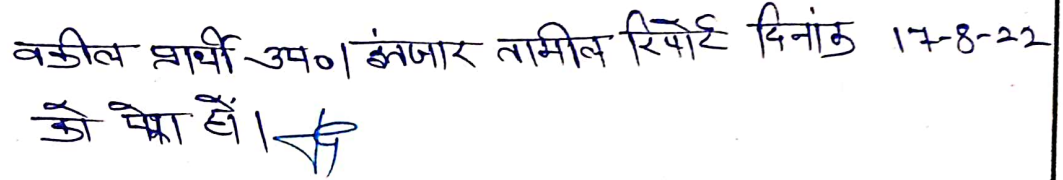 वकील प्रार्थी उप०। इंतजार तामील रिपोर्ट दिनांक 17-8-22
को पेश हों।